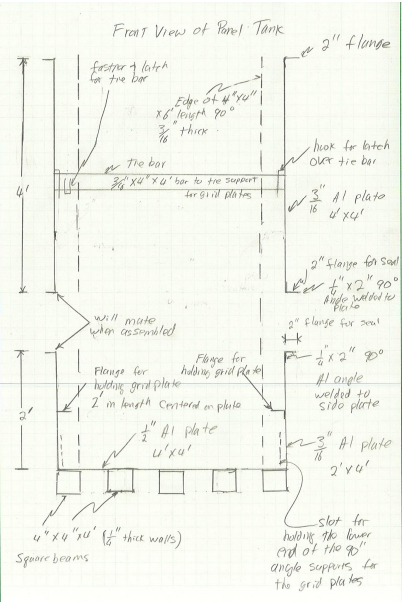 Front View of Panel Tank
2" flange
fastner & latch
for tie bar
Edge of 4"x4"
x6' length 90°
3/16" thick
tie bar
3/4" x 4" x 4' bar to tie support
for grid plates
hook for latch
over tie bar
4'
3/16" Al plate
4' x 4'
2" flange for seal
1/4" x 2" 90°
Angle welded to
plate
will mate
when assembled
2" flange for seal
1/4" x 2" 90°
Al angle
welded to
side plate
Flange for
holding grid plate
2' in length Centered on plate
Flange for
holding grid plate
2'
1/2" Al plate
4' x 4'
3/16" Al plate
2' x 4'
4" x 4" x 4' (1/4" thick walls)
Square beams
slot for
holding the lower
end of the 90°
angle supports for
the grid plates